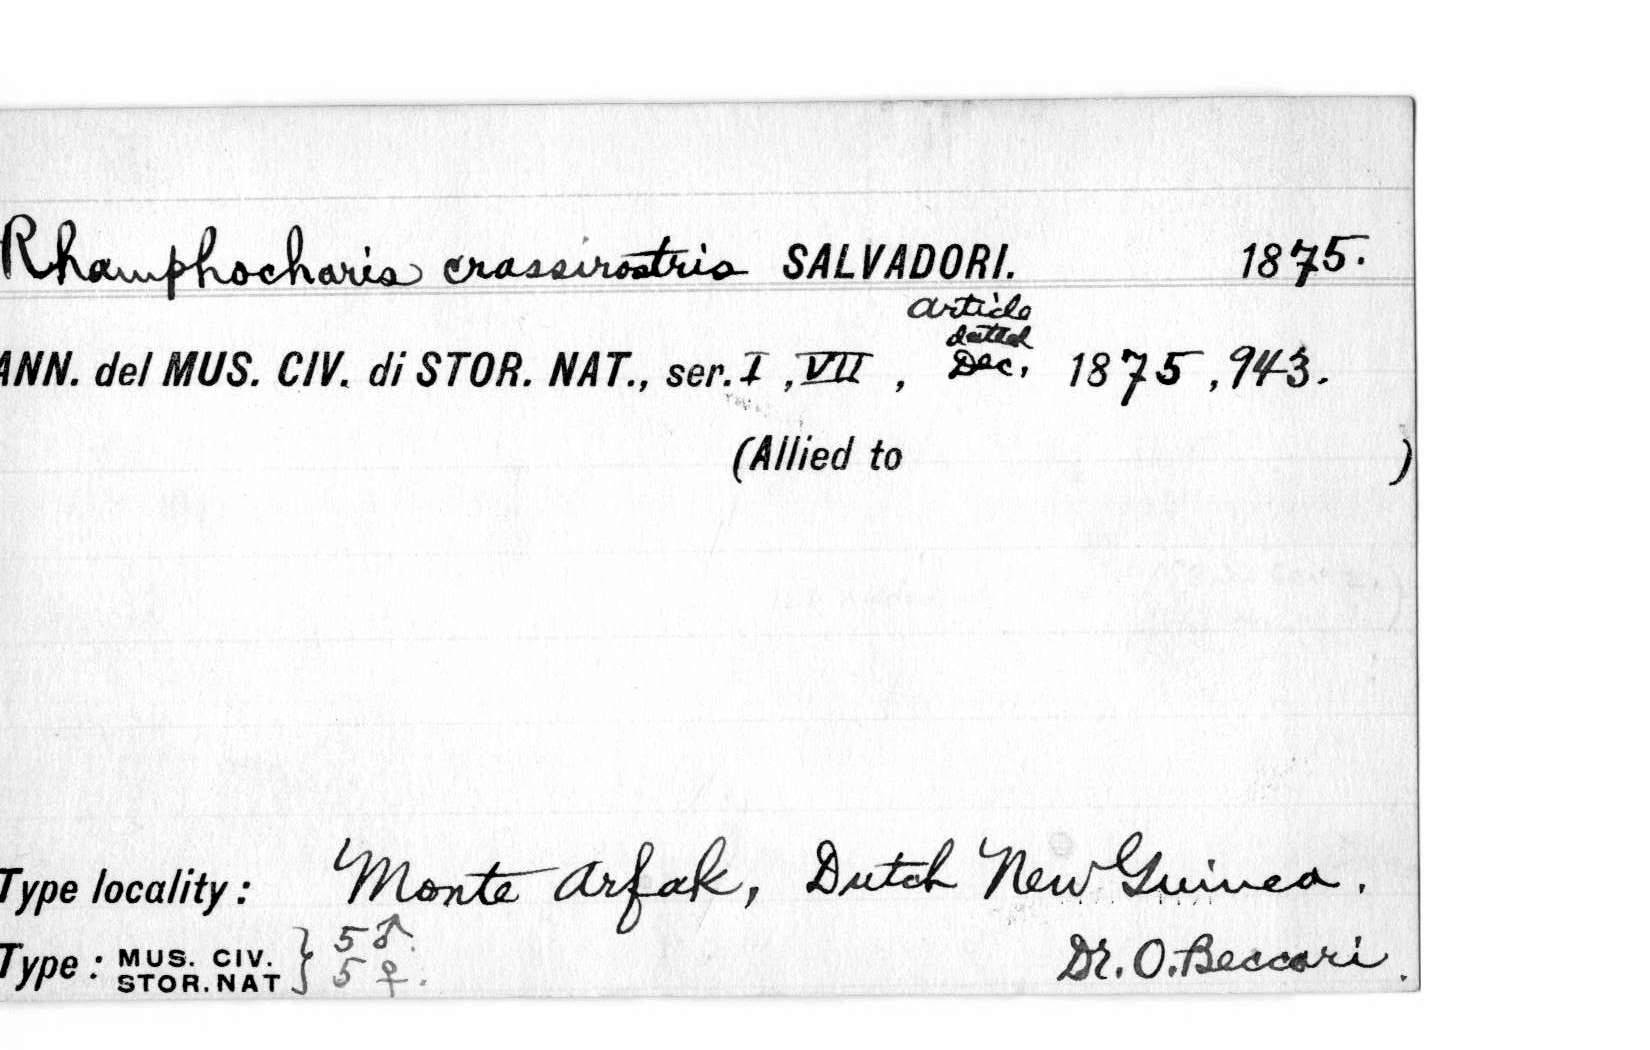 Rhamphocharis crassirostris SALVADORI. 1875.
article
dated
ANN. del MUS. CIV. di STOR. NAT., ser. I, VII, Dec. 1875, 943.
(Allied to )
Type locality: Monte Arfak, Dutch New Guinea.
Type: MUS. CIV. } 5 ♂.
STOR. NAT } 5 ♀.
Dr. O. Beccari.